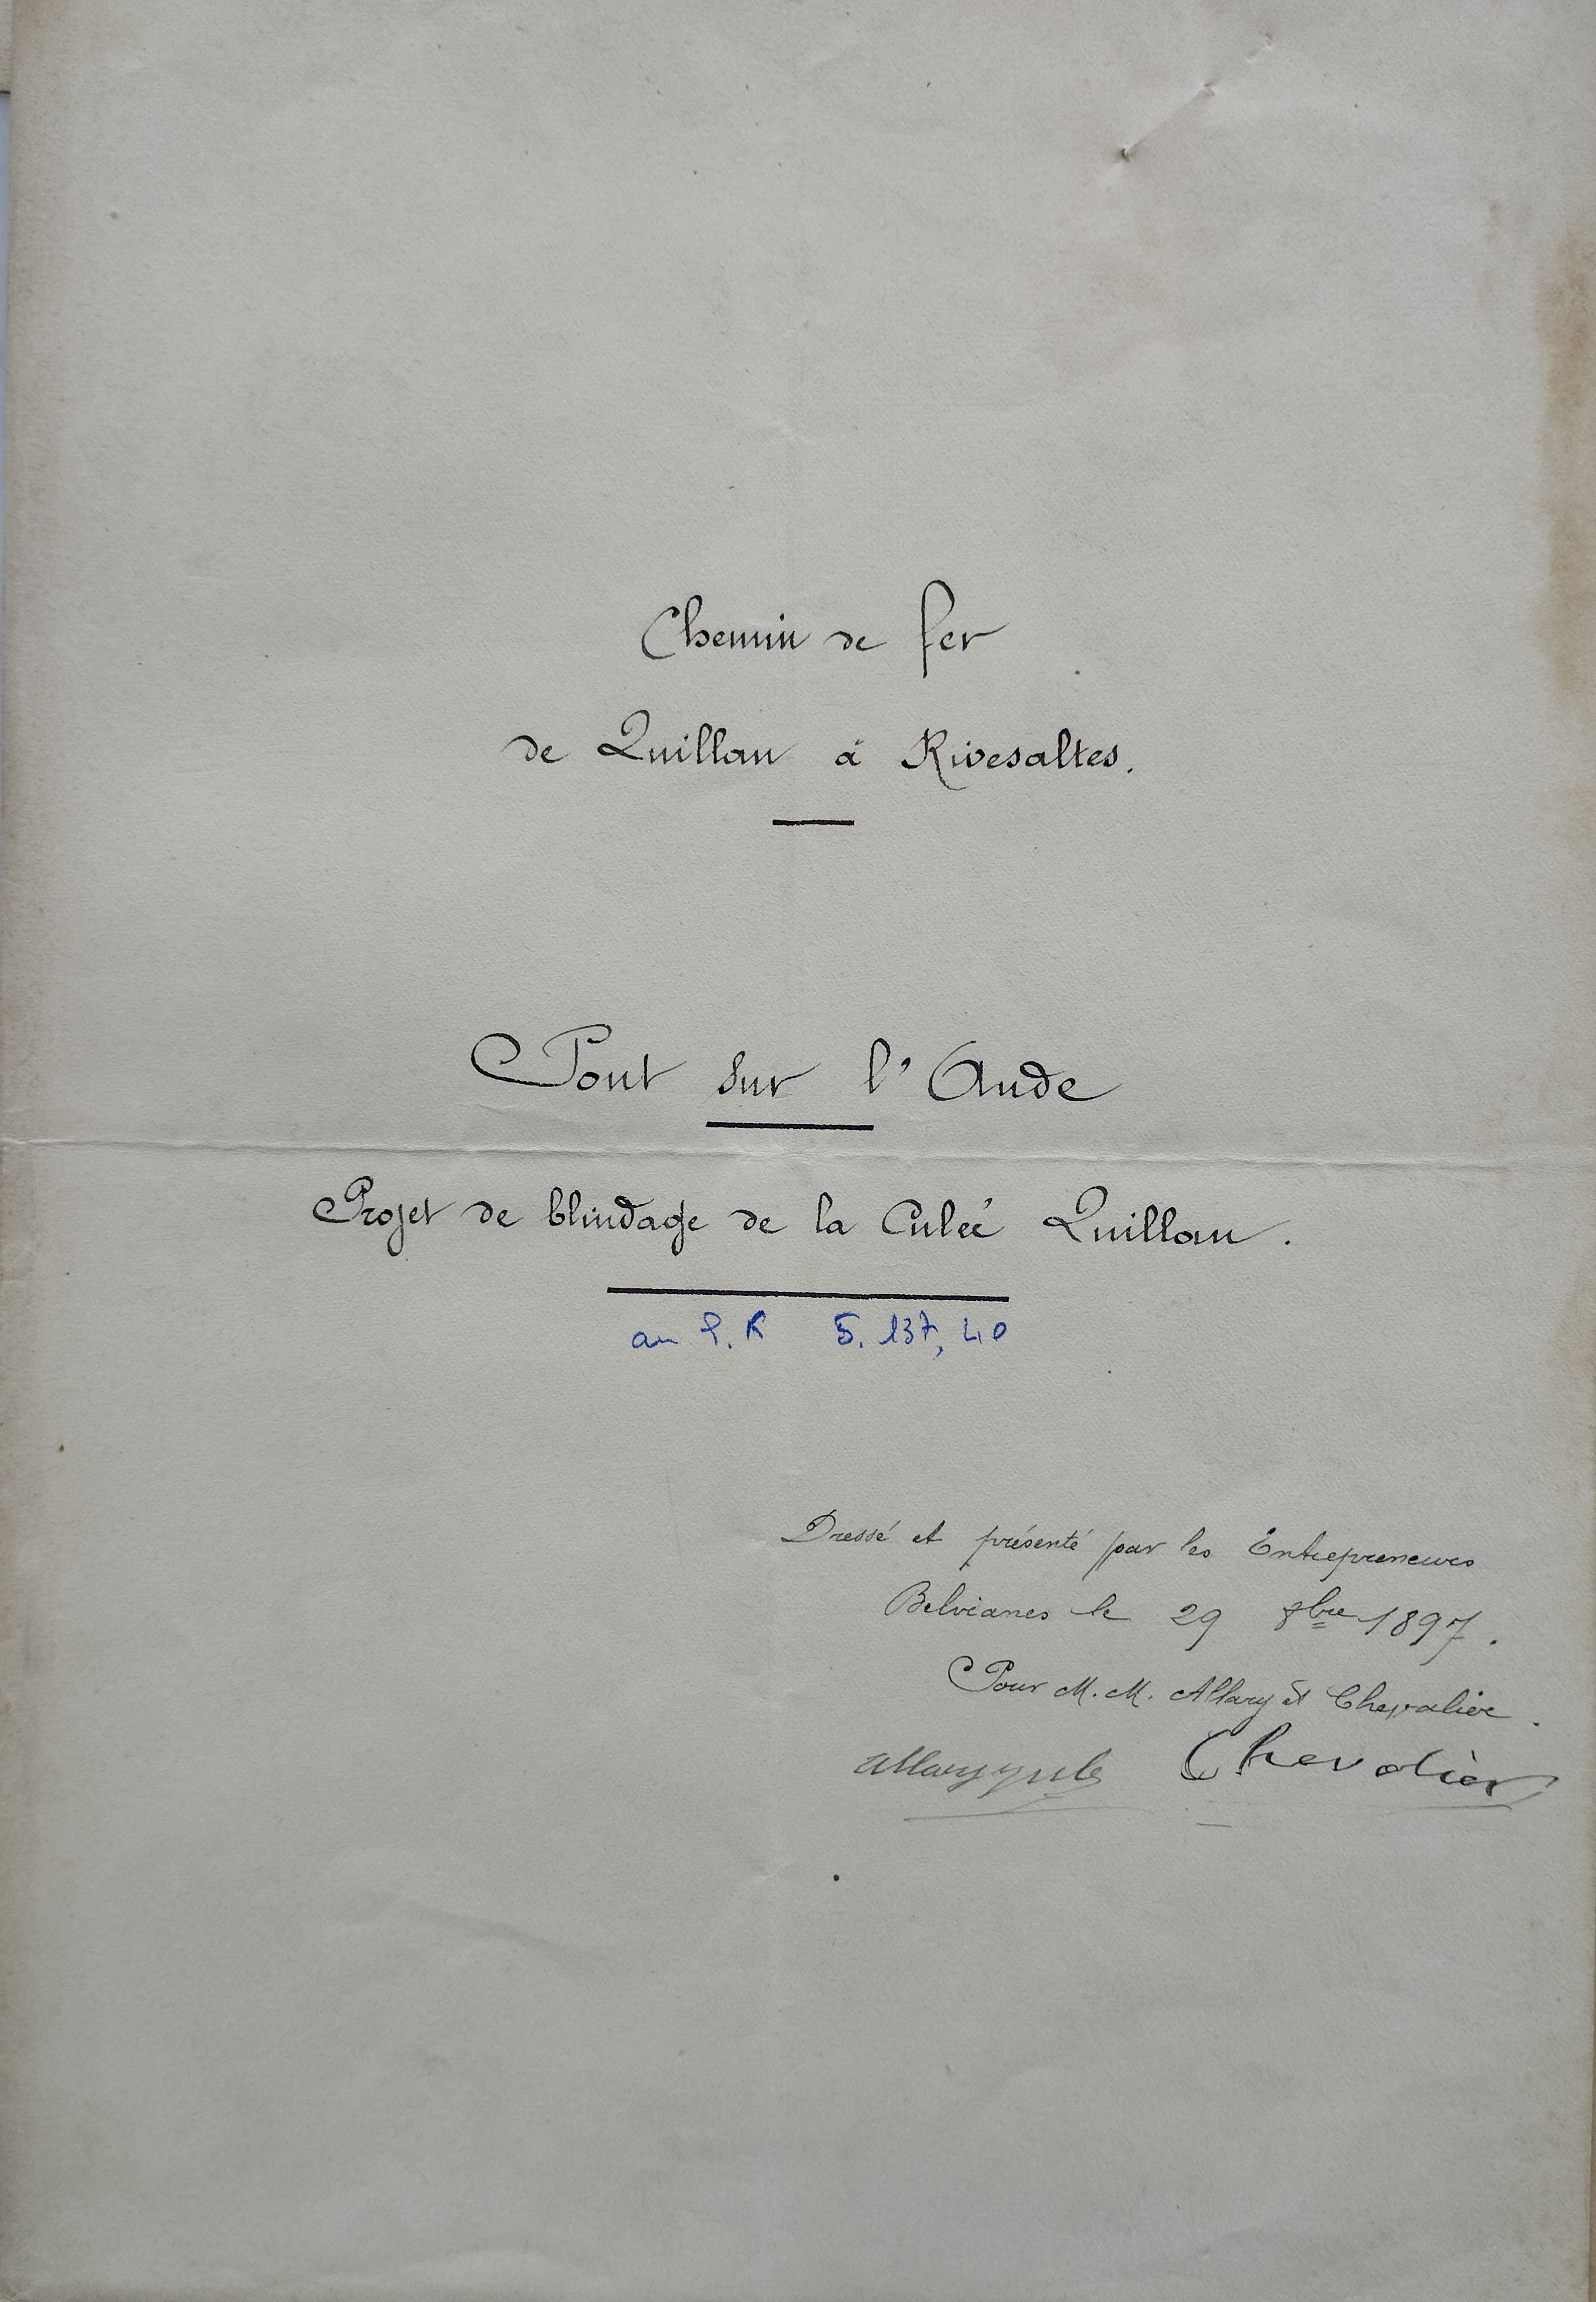 Chemin de fer
de Quillan à Rivesaltes.
Pont sur l'Aude
Projet de blindage de la Culée Quillan.
au P.K 5.137,40
Dressé et présenté par les Entrepreneurs
Belvianes le 29 8bre 1897.
Pour M.M. Allary et Chevalier.
Allary Chevalier